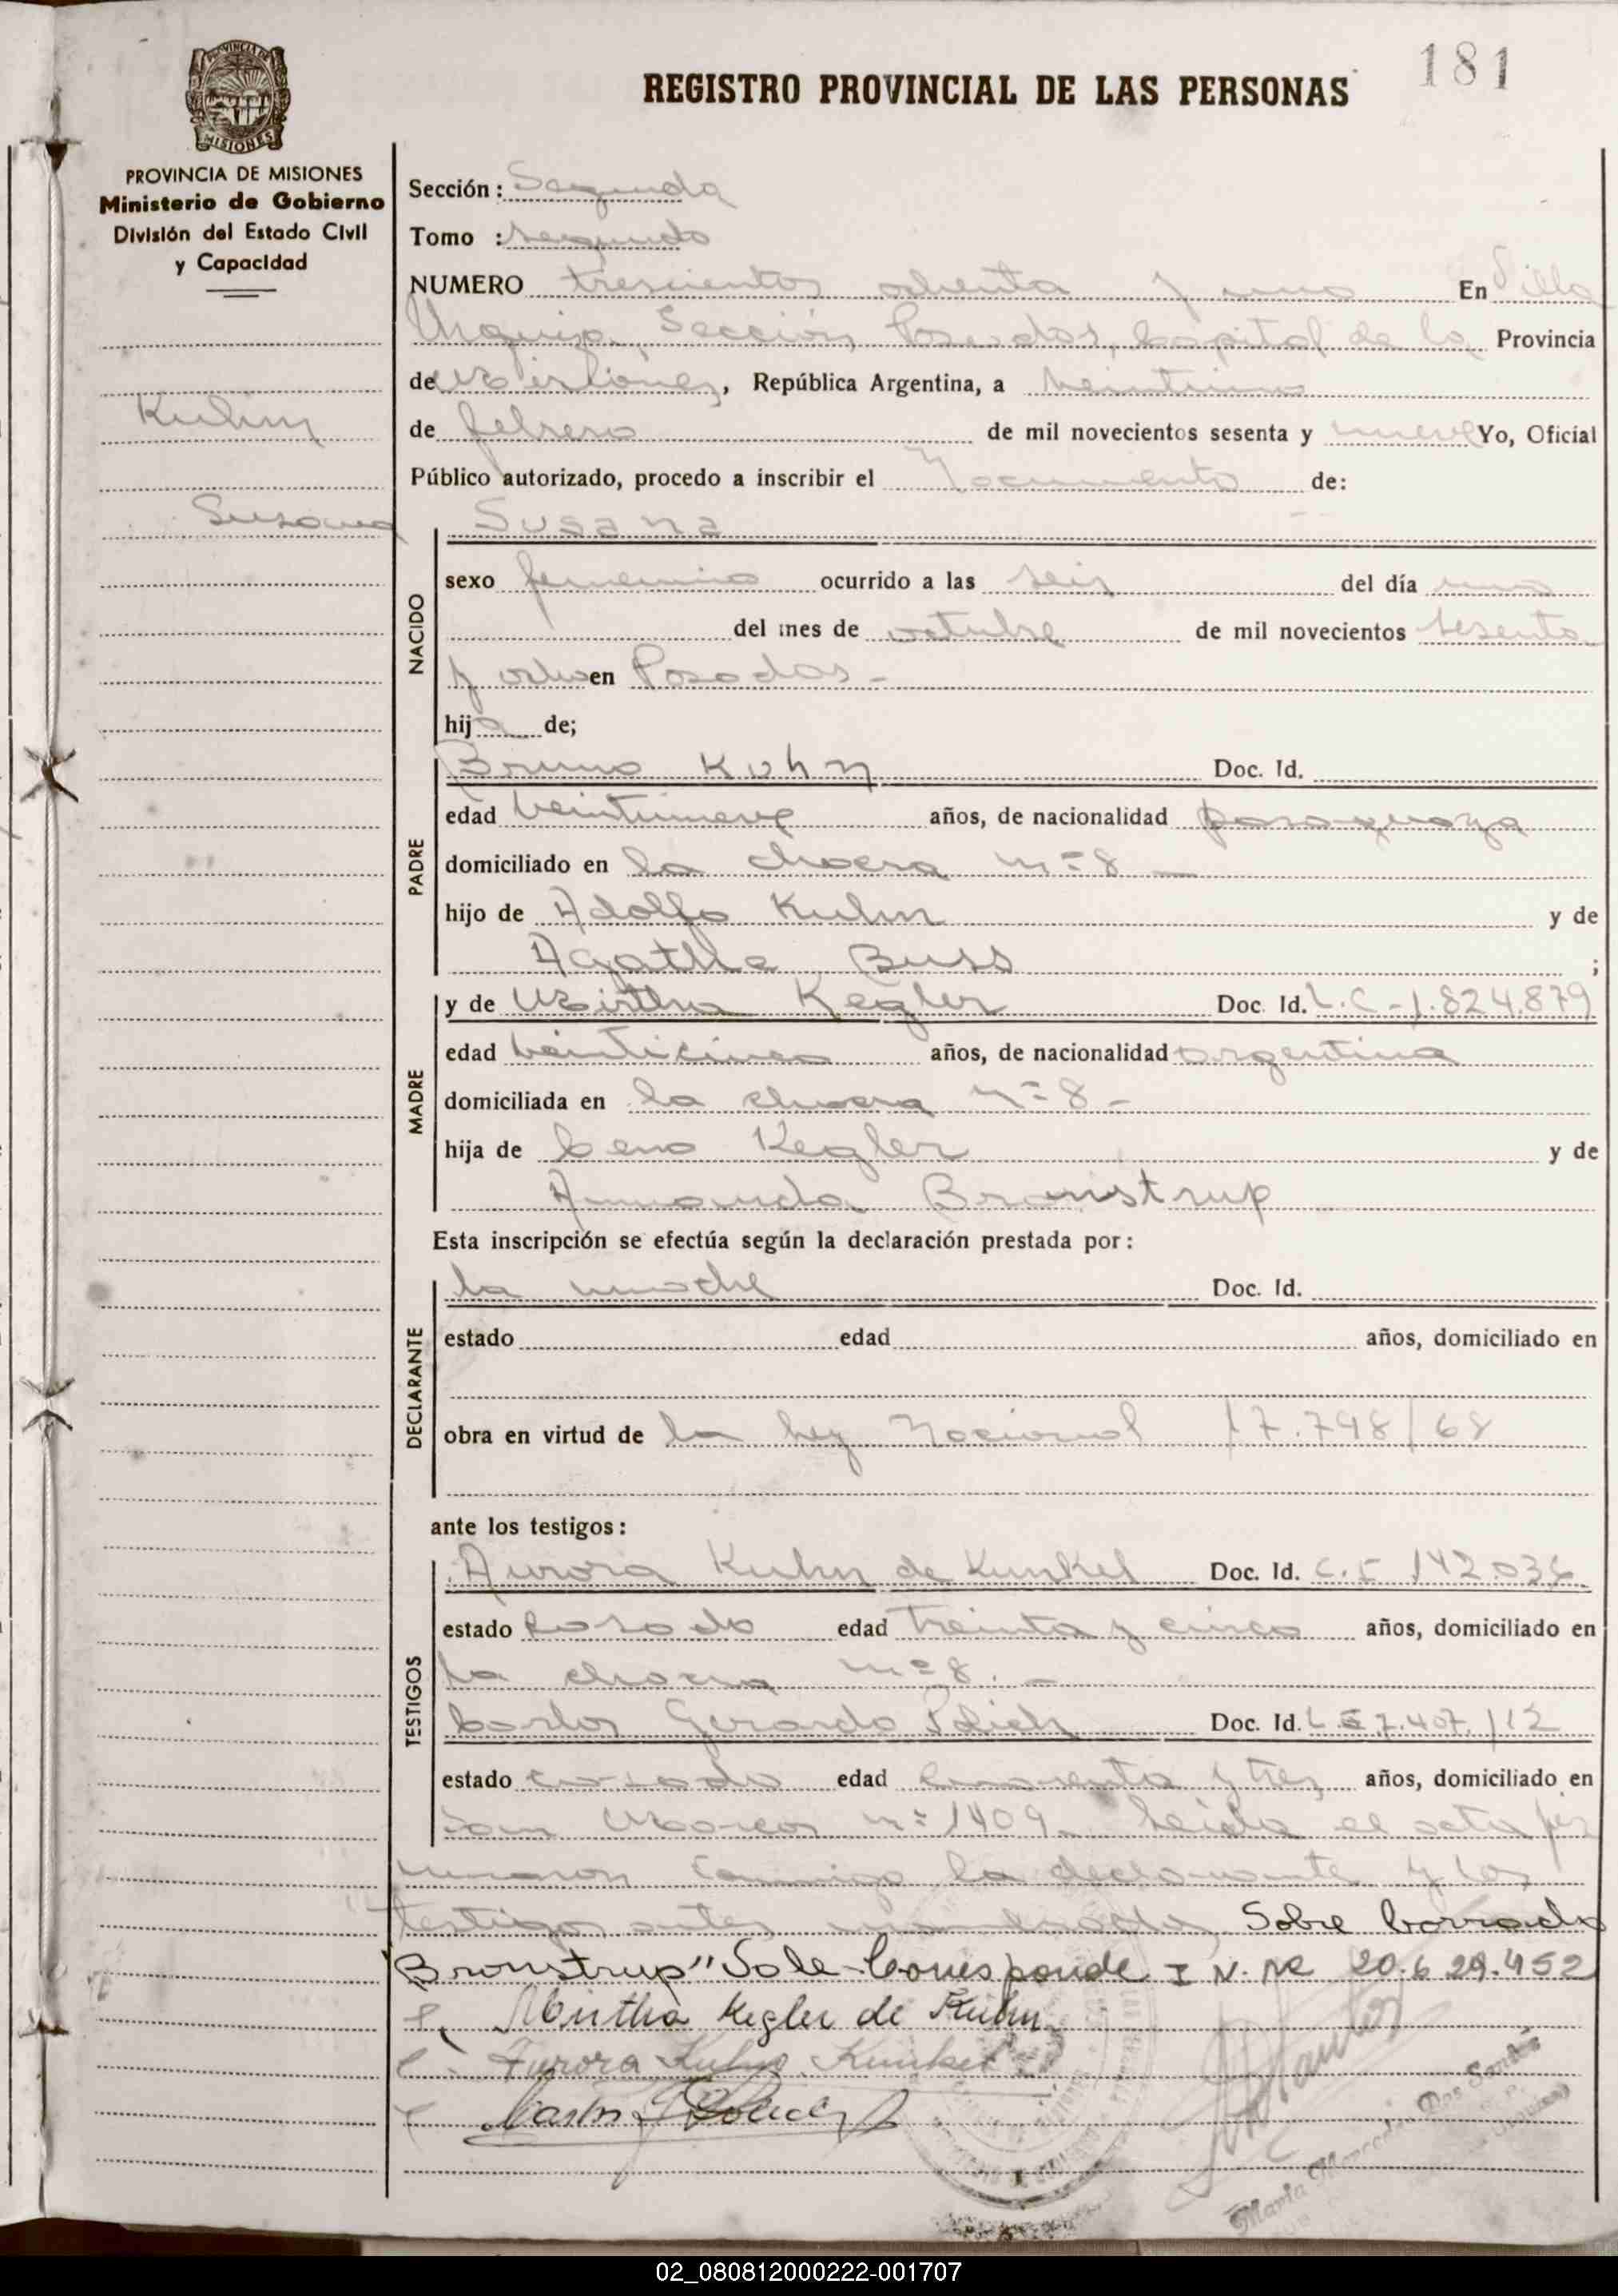 181
REGISTRO PROVINCIAL DE LAS PERSONAS
PROVINCIA DE MISIONES
MISIONES
PROVINCIA DE MISIONES
Ministerio de Gobierno
División del Estado Civil
y Capacidad
Kuhn
Susana
Sección: Segunda
Tomo : segundo
NUMERO trescientos ochenta y uno En Villa
Urquiza, Sección Posadas, Capital de la Provincia
de Misiones, República Argentina, a veintiuno
de febrero de mil novecientos sesenta y nueve Yo, Oficial
Público autorizado, procedo a inscribir el Nacimiento de:
NACIDO
Susana
sexo femenino ocurrido a las seis del día uno
del mes de octubre de mil novecientos sesenta
y ocho en Posadas -
hija de;
PADRE
Bruno Kuhn Doc. Id.
edad veintinueve años, de nacionalidad paraguaya
domiciliado en la chacra nº 8 -
hijo de Adolfo Kuhn y de
Agathe Buss ;
MADRE
y de Mirtha Kegler Doc. Id. L.C - 1.824.879
edad veinticinco años, de nacionalidad argentina
domiciliada en la chacra nº 8 -
hija de Ceno Kegler y de
Armanda Bronstrup
Esta inscripción se efectúa según la declaración prestada por:
DECLARANTE
la madre Doc. Id.
estado edad años, domiciliado en
obra en virtud de la ley Nacional 17.798/68
ante los testigos:
TESTIGOS
Aurora Kuhn de Kunkel Doc. Id. C.I 142.036
estado casado edad treinta y cinco años, domiciliado en
la chacra nº 8. -
Carlos Gerardo Doc. Id. L.E 7.407.112
estado casado edad cuarenta y tres años, domiciliado en
San Marcos nº 1409. Leída el acta fir
maron conmigo la declarante y los
testigos antes nombrados, Sobre borrado
"Bronstrup" Vale. Corresponde I N. Nº 20.629.452
Mirtha Kegler de Kuhn
Aurora Kuhn Kunkel
María Mercedes Dos Santos
02_080812000222-001707